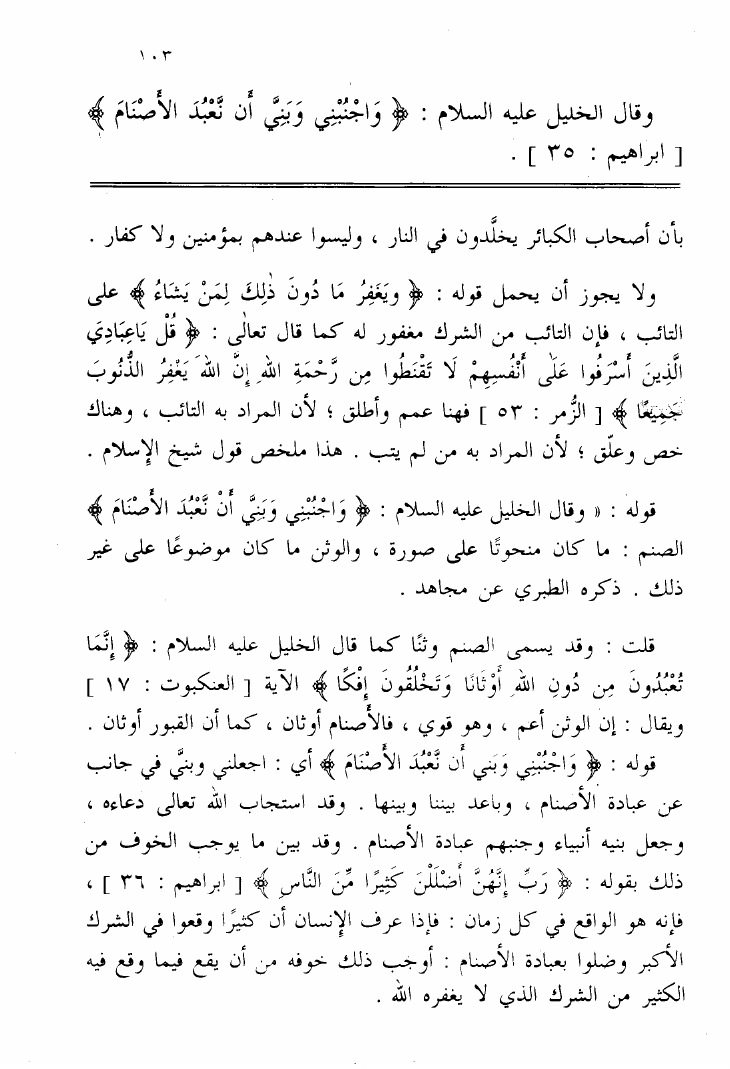 ١٠٣
وقال الخليل عليه السلام : ﴿ وَاجْنُبْنِي وَبَنِيَّ أَن نَّعْبُدَ الأَصْنَامَ ﴾
[ ابراهيم : ٣٥ ] .
بأن أصحاب الكبائر يخلَّدون في النار ، وليسوا عندهم بمؤمنين ولا كفار .
ولا يجوز أن يحمل قوله : ﴿ ويَغَفِرُ مَا دُونَ ذٰلِكَ لِمَنْ يَشَاءُ ﴾ على
التائب ، فإن التائب من الشرك مغفور له كما قال تعالى : ﴿ قُلْ يَاعِبَادِيَ
الَّذِينَ أَسْرَفُوا عَلَى أَنْفُسِهِمْ لَا تَقْنَطُوا مِن رَّحْمَةِ اللهِ إِنَّ اللهَ يَغْفِرُ الذُّنُوبَ
جَمِيعًا ﴾ [ الزُّمر : ٥٣ ] فهنا عمم وأطلق ؛ لأن المراد به التائب ، وهناك
خص وعلّق ؛ لأن المراد به من لم يتب . هذا ملخص قول شيخ الإسلام .
قوله : « وقال الخليل عليه السلام : ﴿ وَاجْنُبْنِي وَبَنِيَّ أَنْ نَّعْبُدَ الأَصْنَامَ ﴾
الصنم : ما كان منحوتًا على صورة ، والوثن ما كان موضوعًا على غير
ذلك . ذكره الطبري عن مجاهد .
قلت : وقد يسمى الصنم وثنًا كما قال الخليل عليه السلام : ﴿ إِنَّمَا
تُعْبُدُونَ مِن دُونِ اللهِ أَوْثَانًا وَتَخْلُقُونَ إِفْكًا ﴾ الآية [ العنكبوت : ١٧ ]
ويقال : إن الوثن أعم ، وهو قوي ، فالأصنام أوثان ، كما أن القبور أوثان .
قوله : ﴿ وَاجْنُبْنِي وَبَني أَن نَّعْبُدَ الأَصْنَامَ ﴾ أي : اجعلني وبنيَّ في جانب
عن عبادة الأصنام ، وباعد بيننا وبينها . وقد استجاب الله تعالى دعاءه ،
وجعل بنيه أنبياء وجنبهم عبادة الأصنام . وقد بين ما يوجب الخوف من
ذلك بقوله : ﴿ رَبِّ إِنَّهُنَّ أَضْلَلْنَ كَثِيرًا مِّنَ النَّاسِ ﴾ [ ابراهيم : ٣٦ ] ،
فإنه هو الواقع في كل زمان : فإذا عرف الإنسان أن كثيرًا وقعوا في الشرك
الأكبر وضلوا بعبادة الأصنام : أوجب ذلك خوفه من أن يقع فيما وقع فيه
الكثير من الشرك الذي لا يغفره الله .